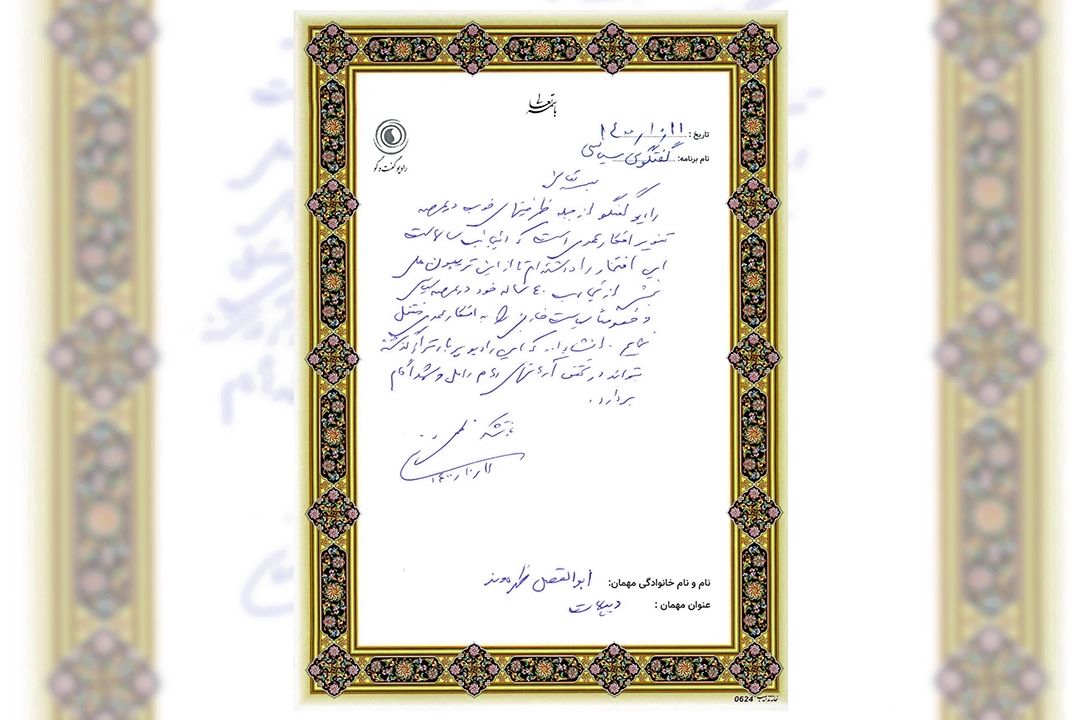 باسمه تعالی
رادیو گفت و گو
تاریخ : ۱۴۰۰/۱۰/۱۱
نام برنامه: گفتگوی سیاسی
بسمه تعالی
رادیو گفتگو از جمله ظرفیتهای خوب در عرصه
تنویر افکار عمومی است که اینجانب سالهاست
این افتخار را داشته ام تا از این تریبون ملی
بخشی از تجارب ۴۰ ساله خود در عرصه سیاسی
و خصوصاً سیاست خارجی را به افکار عمومی منتقل
نمایم . انشاءالله که این رادیو پر بارتر از گذشته
بتواند در تحقق آرمانهای امام راحل و شهدا گام
بردارد .
با تشکر
نام و نام خانوادگی مهمان: ابوالفضل ظهره وند
عنوان مهمان : دیپلمات
0624